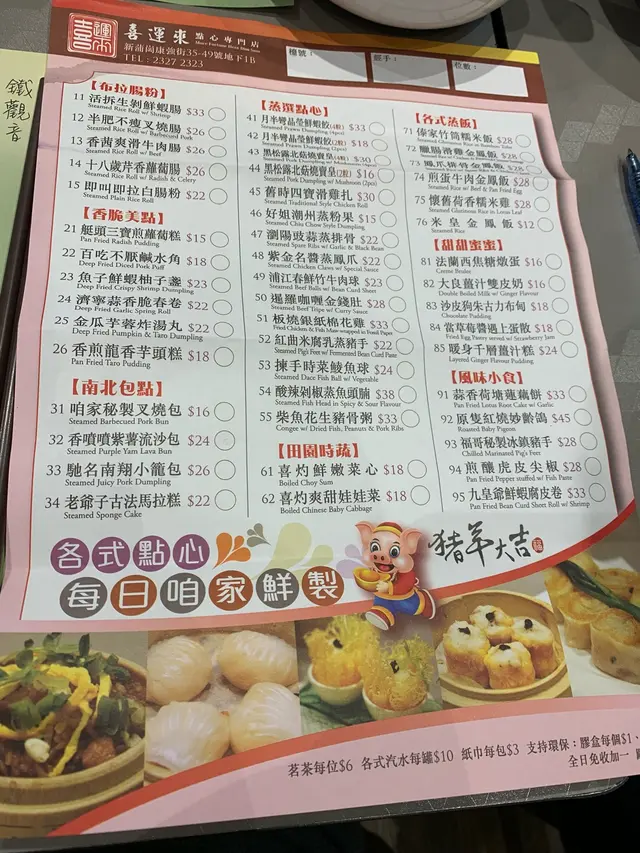 鐵觀音
喜運來
喜運來 點心專門店
More Fortune Store Dim Sum
新蒲崗康強街35-49號地下1B
TEL : 2327 2323
檯號：
經手：
位數：
【布拉腸粉】
11 活拆生剝鮮蝦腸 $33
Steamed Rice Roll w/ Shrimp
12 半肥不瘦叉燒腸 $26
Steamed Rice Roll w/ Barbecued Pork
13 香茜爽滑牛肉腸 $26
Steamed Rice Roll w/ Beef
14 十八歲芹香蘿蔔腸 $26
Steamed Rice Roll w/ Radish & Celery
15 即叫即拉白腸粉 $22
Steamed Plain Rice Roll
【香脆美點】
21 艇頭三寶煎蘿蔔糕 $15
Pan Fried Radish Pudding
22 百吃不厭鹹水角 $18
Deep Fried Diced Pork Puff
23 魚子鮮蝦柚子盞 $23
Deep Fried Crispy Shrimp Dumpling
24 濟寧蒜香脆春卷 $22
Deep Fried Garlic Spring Roll
25 金瓜芋蓉炸湯丸 $22
Deep Fried Pumpkin & Taro Dumpling
26 香煎龍香芋頭糕 $18
Pan Fried Taro Pudding
【南北包點】
31 咱家秘製叉燒包 $16
Steamed Barbecued Pork Bun
32 香噴噴紫薯流沙包 $24
Steamed Purple Yam Lava Bun
33 馳名南翔小籠包 $26
Steamed Juicy Pork Dumpling
34 老爺子古法馬拉糕 $22
Steamed Sponge Cake
【蒸選點心】
41 月半彎晶瑩鮮蝦餃(4粒) $33
Steamed Prawn Dumpling (4pcs)
42 月半彎晶瑩鮮蝦餃(2粒) $18
Steamed Prawn Dumpling (2pcs)
43 黑松露北菇燒賣皇(4粒) $30
44 黑松露北菇燒賣皇(2粒) $16
Steamed Pork Dumpling w/ Mushroom (2pcs)
45 舊時四寶滑雞扎 $30
Steamed Traditional Style Chicken Roll
46 好姐潮州蒸粉果 $15
Steamed Chiu Chow Style Dumpling
47 瀏陽豉蒜蒸排骨 $22
Steamed Spare Ribs w/ Garlic & Black Bean
48 紫金名醬蒸鳳爪 $22
Steamed Chicken Claws w/ Special Sauce
49 浦江春鮮竹牛肉球 $23
Steamed Beef Balls w/ Bean Curd Sheet
50 暹羅咖喱金錢肚 $28
Steamed Beef Tripe w/ Curry Sauce
51 板燒銀紙棉花雞 $33
Fried Chicken & Fish Maw wrapped in Small Paper
52 紅曲米腐乳蒸豬手 $22
Steamed Pig's Feet w/ Fermented Bean Curd Paste
53 揀手時菜鯪魚球 $24
Steamed Dace Fish Ball w/ Vegetable
54 酸辣剁椒蒸魚頭腩 $38
Steamed Fish Head in Spicy & Sour Flavour
55 柴魚花生豬骨粥 $33
Congee w/ Dried Fish, Peanuts & Pork Ribs
【田園時蔬】
61 喜灼鮮嫩菜心 $18
Boiled Choy Sum
62 喜灼爽甜娃娃菜 $18
Boiled Chinese Baby Cabbage
【各式蒸飯】
71 傣家竹筒糯米飯 $28
Steamed Glutinous Rice in Bamboo Tube
72 臘腸滑雞金鳳飯 $28
73 鳳爪排骨金鳳飯 $28
74 煎蛋牛肉金鳳飯 $28
Steamed Rice w/ Beef & Pan Fried Egg
75 懷舊荷香糯米雞 $28
Steamed Glutinous Rice in Lotus Leaf
76 米皇金鳳飯 $12
Steamed Rice
【甜甜蜜蜜】
81 法蘭西焦糖燉蛋 $16
Creme Brulee
82 大良薑汁雙皮奶 $16
Double Boiled Milk w/ Ginger Flavour
83 沙皮狗朱古力布甸 $18
Chocolate Pudding
84 當草莓醬遇上蛋散 $18
Fried Egg Pastry served w/ Strawberry Jam
85 暖身千層薑汁糕 $24
Layered Ginger Flavour Pudding
【風味小食】
91 蒜香荷塘蓮藕餅 $33
Pan Fried Lotus Root Cake w/ Garlic
92 原隻紅燒妙齡鴿 $45
Roasted Baby Pigeon
93 福哥秘製冰鎮豬手 $28
Chilled Marinated Pig's Feet
94 煎釀虎皮尖椒 $28
Pan Fried Pepper stuffed w/ Fish Paste
95 九皇爺鮮蝦腐皮卷 $33
Pan Fried Bean Curd Sheet Roll w/ Shrimp
各式點心
每日咱家鮮製
豬年大吉
福
茗茶每位$6 各式汽水每罐$10 紙巾每包$3 支持環保：膠盒每個$1、
全日免收加一